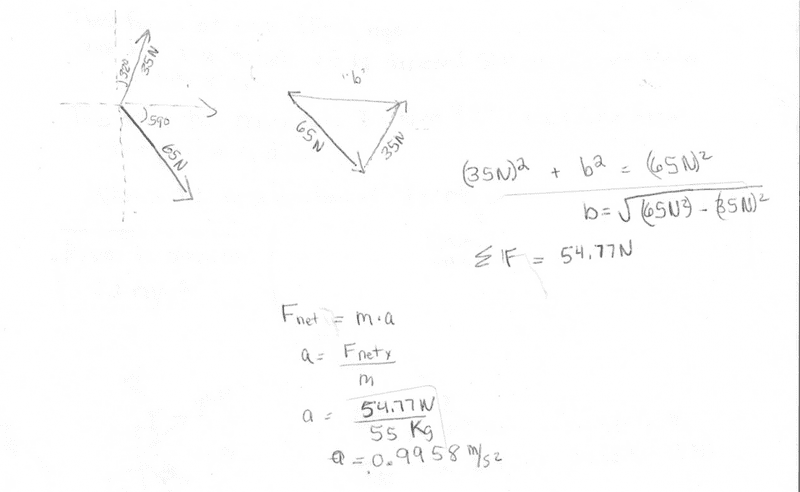 320
35N
590
65N
"b"
65N
35N
(35N)² + b² = (65N)²
b=√(65N²) - (35N)²
ΣF = 54.77N
Fnet = m·a
a= Fnetx
m
a = 54.77N
55 Kg
a=0.9958 m/s2